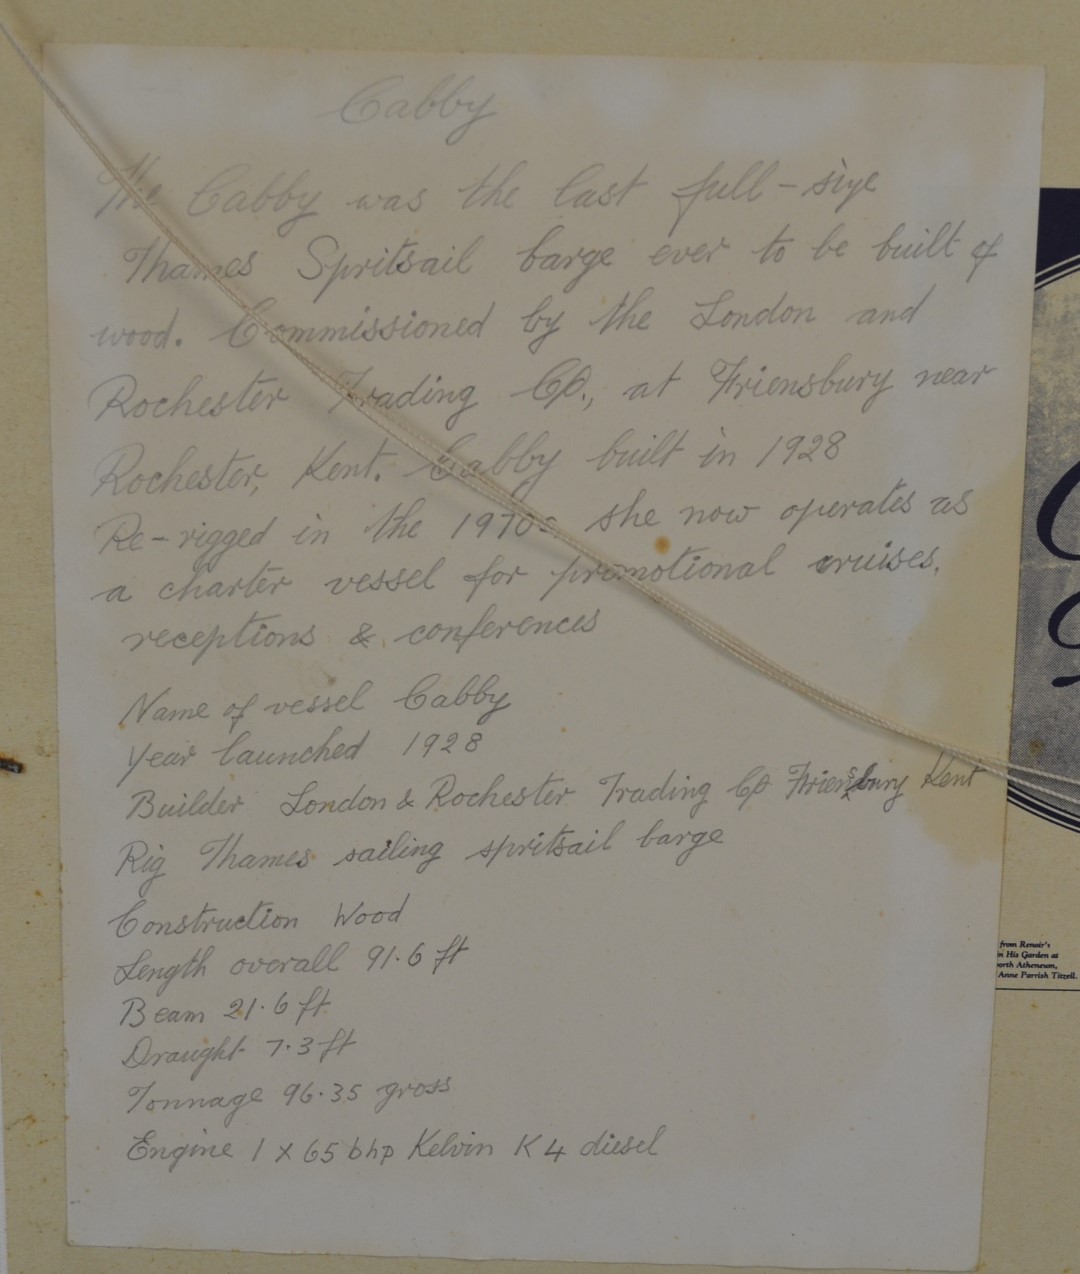 Cabby
The Cabby was the last full-size
Thames Spritsail barge ever to be built of
wood. Commissioned by the London and
Rochester Trading Co., at Friensbury near
Rochester, Kent. Cabby built in 1928
Re-rigged in the 1970s, she now operates as
a charter vessel for promotional cruises,
receptions & conferences
Name of vessel Cabby
Year launched 1928
Builder London & Rochester Trading Co Friensbury Kent
Rig Thames sailing spritsail barge
Construction Wood
Length overall 91.6 ft
Beam 21.6 ft
Draught 7.3 ft
Tonnage 96.35 gross
Engine 1 x 65 bhp Kelvin K4 diesel
from Renoir's
in His Garden at
orth Atheneum,
Anne Parrish Titzell.